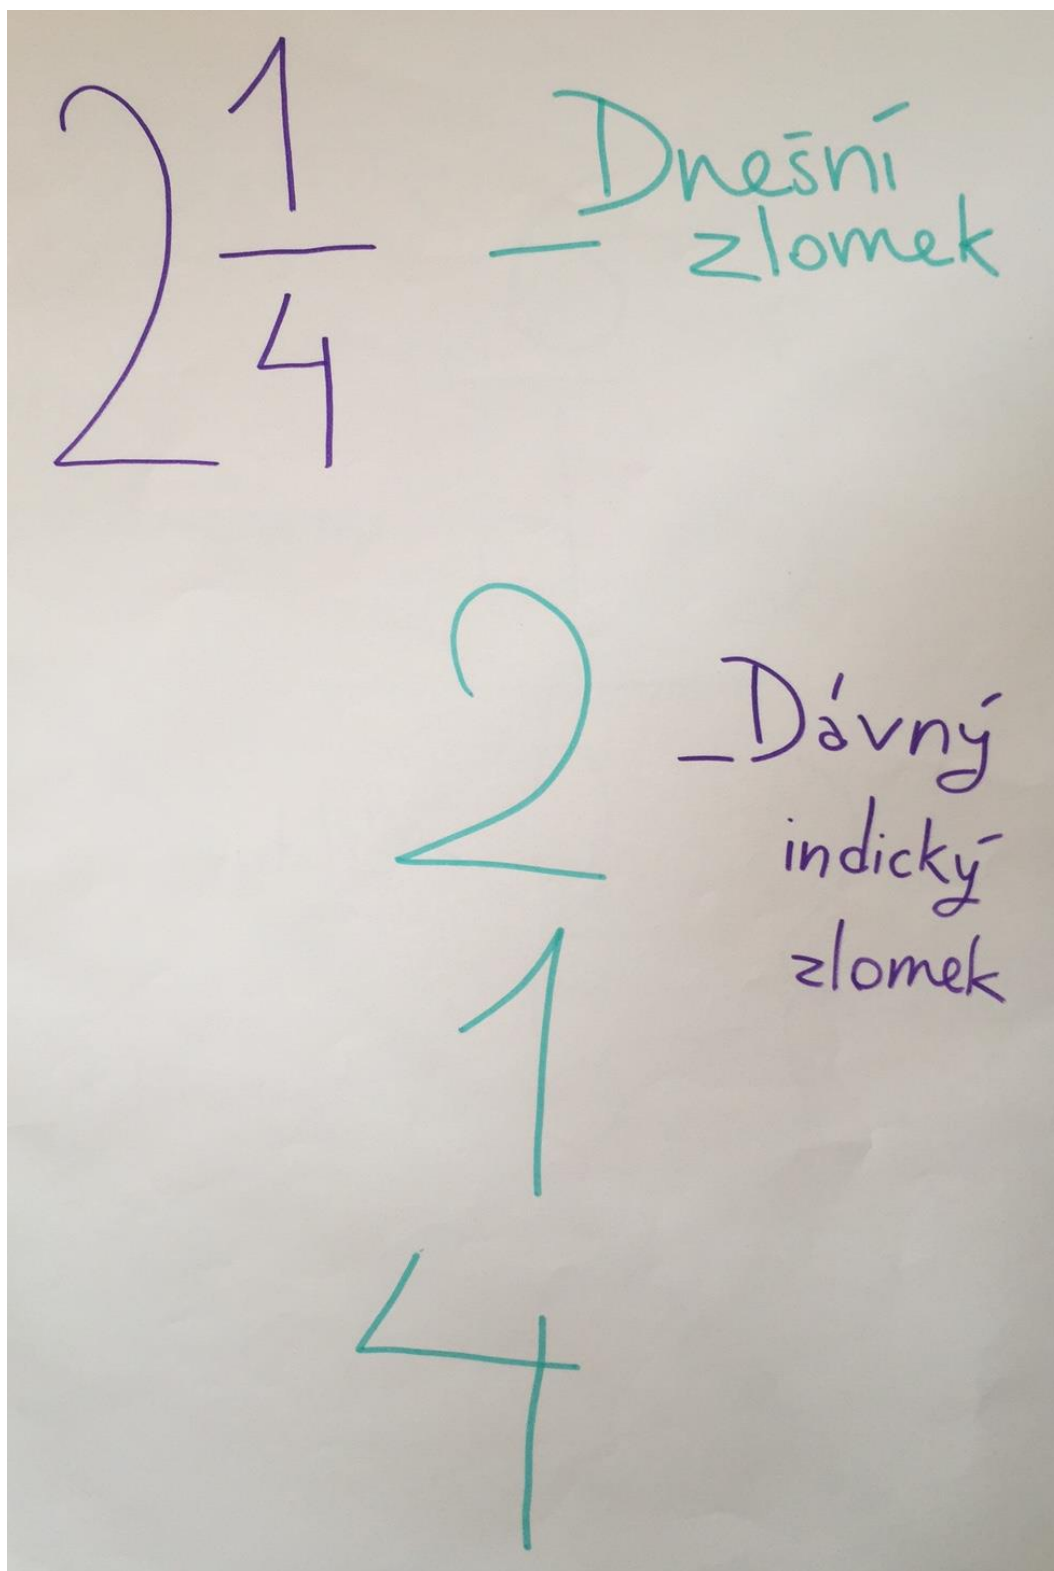 2 1/4 – Dnešní
zlomek
2
– Dávný
indický
zlomek
1
4